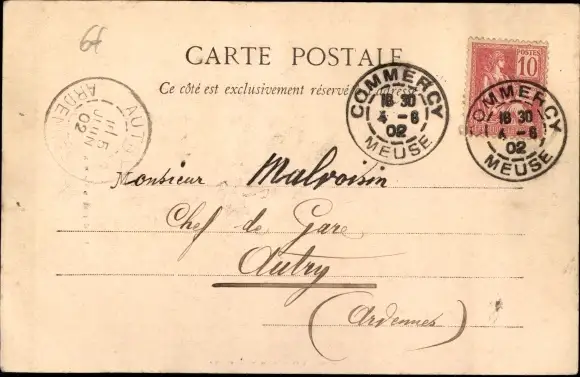 6f
CARTE POSTALE
Ce côté est exclusivement réservé à l'adresse
POSTES
10
COMMERCY
18 30
4 - 6
02
MEUSE
COMMERCY
18 30
4 - 6
02
MEUSE
AUTRY
5
JUIN
02
ARDENNES
Monsieur Malvoisin
Chef de Gare
Autry
(Ardennes)